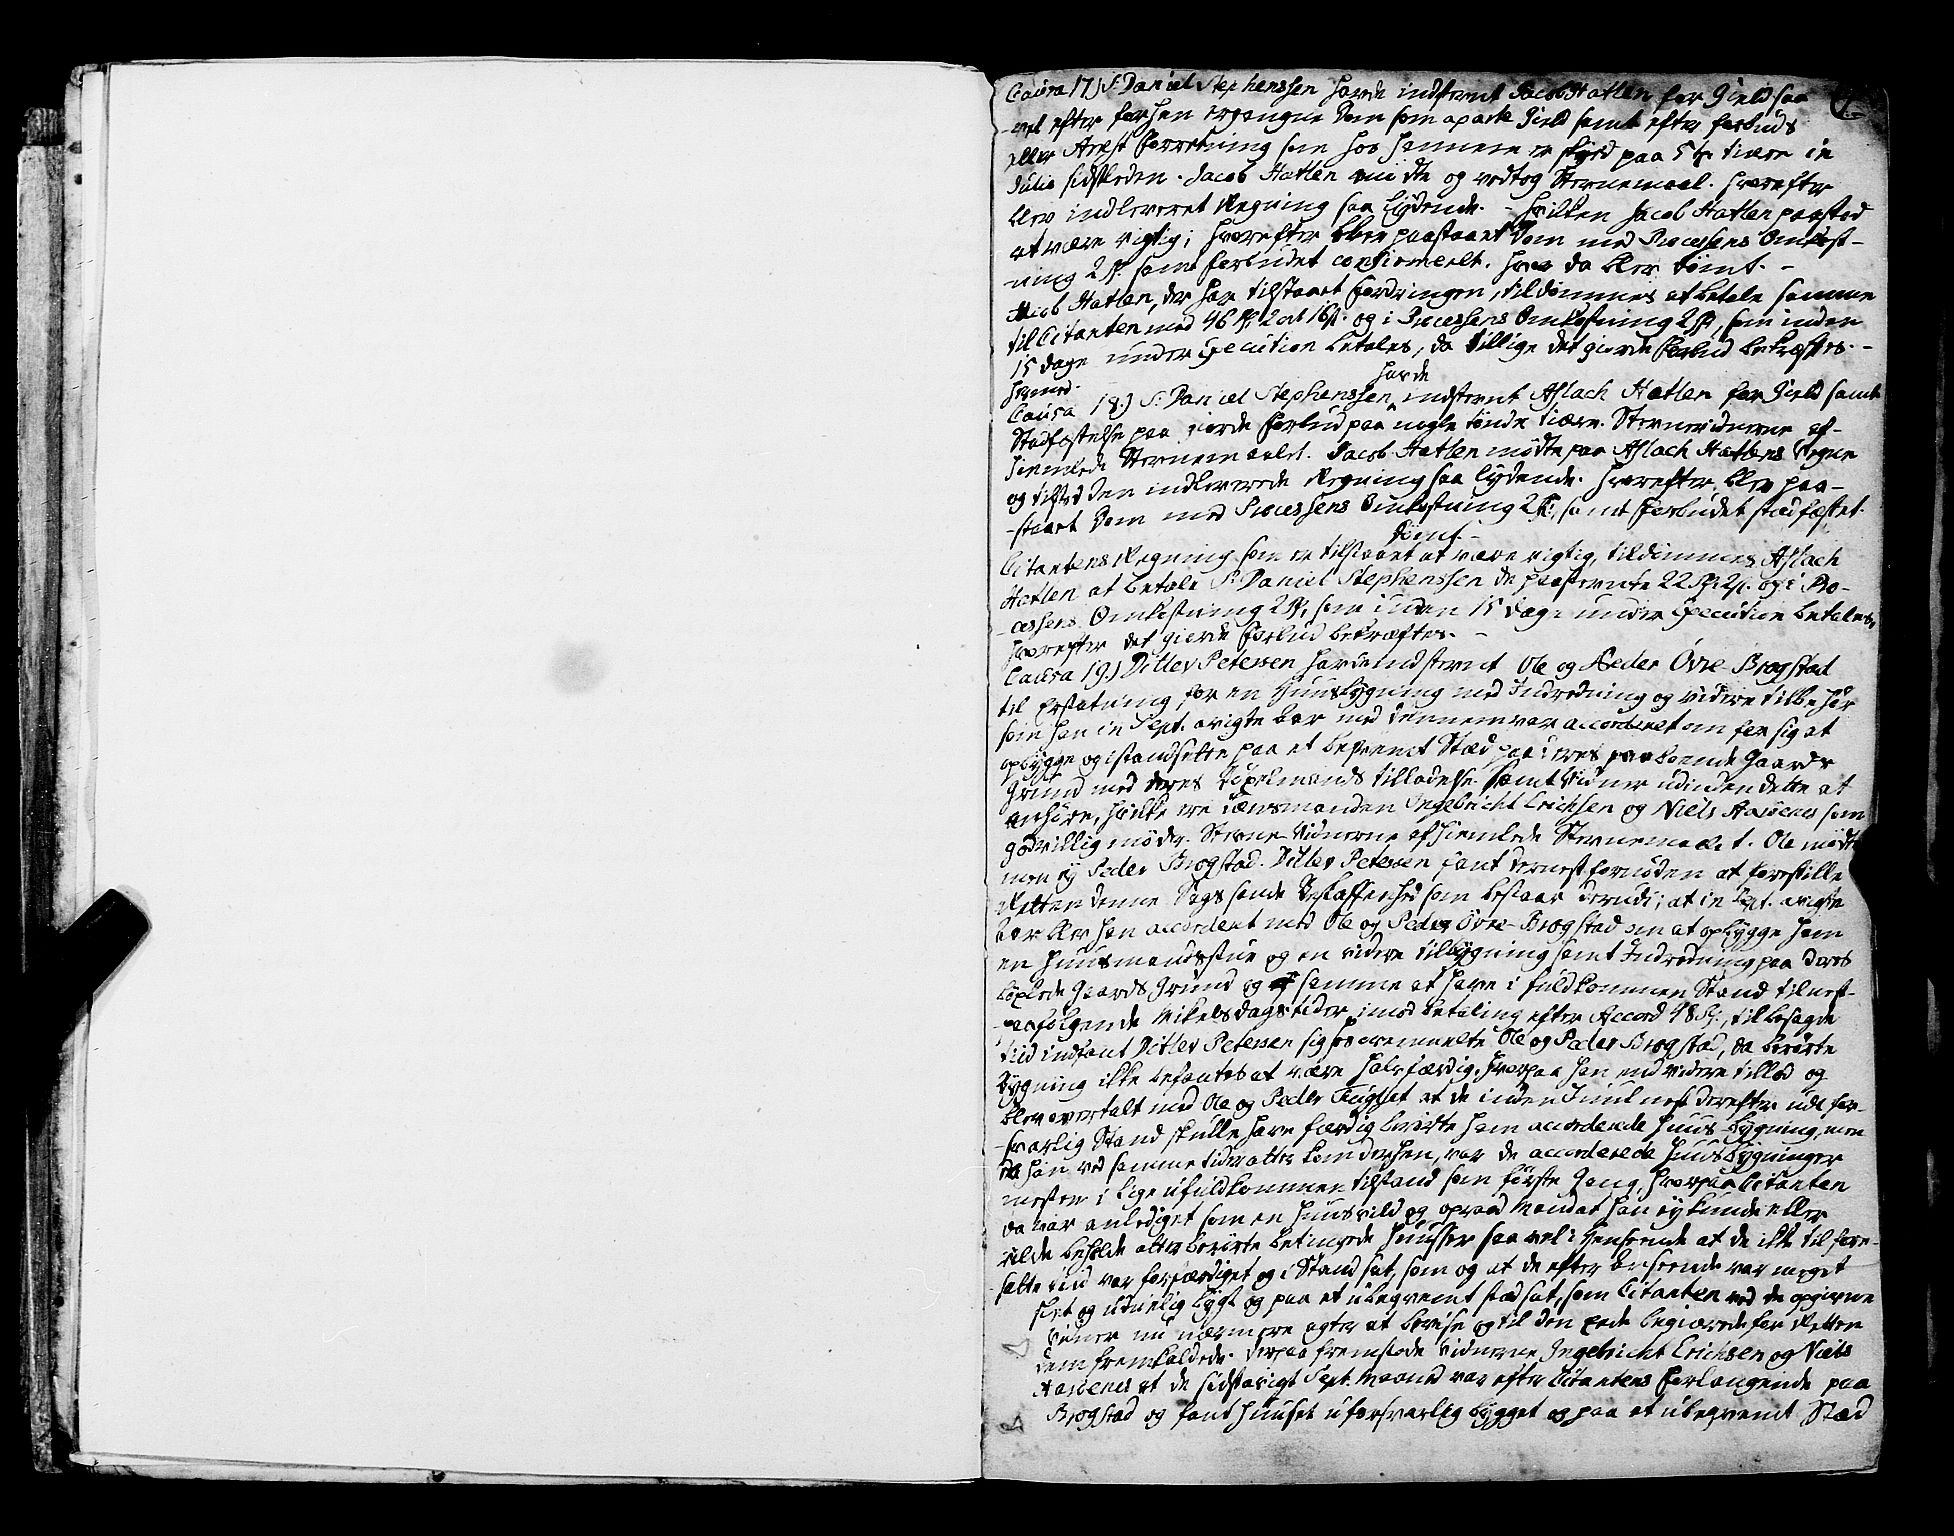 Causa 17) Sr Daniel Stephenssen havde indstevnt Jacob Hatlen for Gield saa
vel efter forhen ergangne Dom som aparte Gield samt efter forbuds
eller Arrest Forretning som hos hannem er skeed paa 5 tr Tiære in
Julio sidstleden. Jacob Hatlen mødte og vedtog Stevnemaal. hvorefter
blev indleveret Regning saa lydende. - hvilken Jacob Hatlen paastod
at være rigtig; hvorefter blev paastaaet Dom med Processens Omkost-
-ning 2 rd. samt forbudet confirmeret. hvor da blev dømt. -
Jacob Hatlen, der har tilstaaet fordringen, tildømmes at betale samme
til Citanten med 46 rd 2 ort 16 s. og i Processens Omkostning 2 rd, som inden
15 dage under Execution betales, da tillige det giorde Forbud bekræftes. -
hermed.
Causa 18.) Sr Daniel Stephenssen havde indstevnt Aslach Hatlen for Gield samt
Stadfæstelse paa giorde Forbud paa nogle tønde Tiære. Stevnevidnerne af-
hiemlede Stevnemaalet. Jacob Hatlen mødte paa Aslach Hatlens Vegne
og tilstod den indleverede Regning saa lydende. hvorefter blev paa-
-staaet Dom med Processens Omkostning 2 rd: samt Forbudet stadfæstet.
Dømt. -
Citantens Regning som er tilstaaet at være rigtig, tildømmes Aslach
Hatlen at betale Sr Daniel Stephenssen de paastevnte 22 rd 2 s. og i Pro-
-cessens Omkostning 2 rd, som inden 15 dage under Execution betales,
hvorefter det giorde Forbud bekræftes. -
Causa 19.) Ditlev Petersen havde indstevnt Ole og Peder Øvre Brogstad
til Erstatning, for en Huusbygning med Indredning og videre tilbehør
som han in Sept. avigte Aar med dennem var accorderet om for sig at
opbygge og istandsette paa et beqvemt Stæd paa deres paaboende Gaards
Grund med deres Løxelmands tilladelse samt Vidner udi den dette at
anhøre, hvilke ere Lænsmanden Ingebricht Erichsen og Niels Aasøenes som
godvillig møder. Stevne-Vidnerne afhiemlede Stevnemaalet. Ole mødte
men ey Peder Brogstad. Ditlev Petersen fant dernest fornøden at forestille
Retten denne Sags sande Beskaffenhed som bestaar derudi; at in Sept. avigte
Aar blev han accorderet med Ole og Peder Øvre-Brogstad om at opbygge ham
en Huusmandsstue og en videre tilbygning samt Indredning paa deres
bøxlede Gaards Grund og samme at have i fuldkommen Stand til nest-
-paafølgende Mikelsdagstider imod betaling efter Accord 48 rd:, til besagde
tiid indfant Ditlev Petersen sig hos ermeldte Ole og Peder Brogstad, da berørte
Bygning ikke befantes at være halvfærdig, hvorpaa han end videre tillod og
blev overtalt med Ole og Peder at de inden Juul nest derefter udi for-
-svarlig Stand skulle have færdig berørte ham accorderede Huus-bygning, men
da han ved samme tider atter kom derhen, var de accorderede Huusbygninger
mesten i lige ufuldkommen tilstand som første Gang, hvorpaa Citanten
da var anlediget som en huusvild og opraad Mand at han ey kunde eller
vilde beholde alter berørte betingede Huusser saa vel i Henseende at de ikke til fore-
satte tiid var forfærdiget og i Stand sat, som og at de efter Anseende var meget
slet og utienlig bygt og paa et ubeqvemt stæd sat, som Citanten ved de opgivne
Vidner nu nærmere agter at bevise og til den Ende begiærede for Retten
dem fremkaldede. derpaa fremstode vidnerne Ingebricht Erichsen og Niels
Aasøenes at de sidstavigt Sept. Maaned var efter Citantens Forlangende paa
Brogstad og fant huuset uforsvarlig bygget og paa et ubeqvemt Stæd